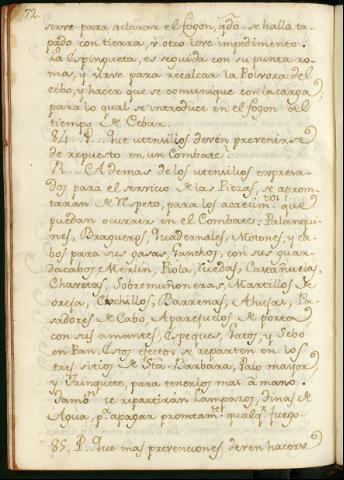 72.
sirve para aclarar el fogon, q.do se halla ta-
pado con tierra, ù otro leve impedimento.
La Espingueta, es seguida con su punta ro-
ma, y sirve para recalcar la Polvora del
cebo, y hacer que se comunique con la carga,
para lo qual se introduce en el fogon al
tiempo de Cebar.
84..P... Que utensilios deven prevenirse
de repuesto en un Combate?
R... Ademas de los utensilios expresa-
dos para el servicio de las Piezas, se apron-
tarán de Respeto, para los acaecim.tos que
puedan ocurrir en el Combate. Palanqui-
nes, Bragueros, Quadernales, Motones, y ca-
bos para sus gasas, Ganchos, con sus guar-
dacabos, Merlin, Piola, Ruedas, Castañuelas,
Chavetas, Sobremuñoneras, Martillos de
oreja, Cuchillos, Barrenas, Ahujas, Pa-
sadores de Cabo, Aparejuelos de porta
con sus amantes, Espeques, Gatos, y Sebo
en Pan. Estos efectos se reparten en los
tres sitios de Sta. Barbara, Palo mayor,
y Trinquete, para tenerlos mas à mano.
Tamb.n se repartirán Lampazos, Tinas de
Agua, p.a apagar promtam.te qualq.r fuego.
85..P... Que mas prevenciones deven hacerse